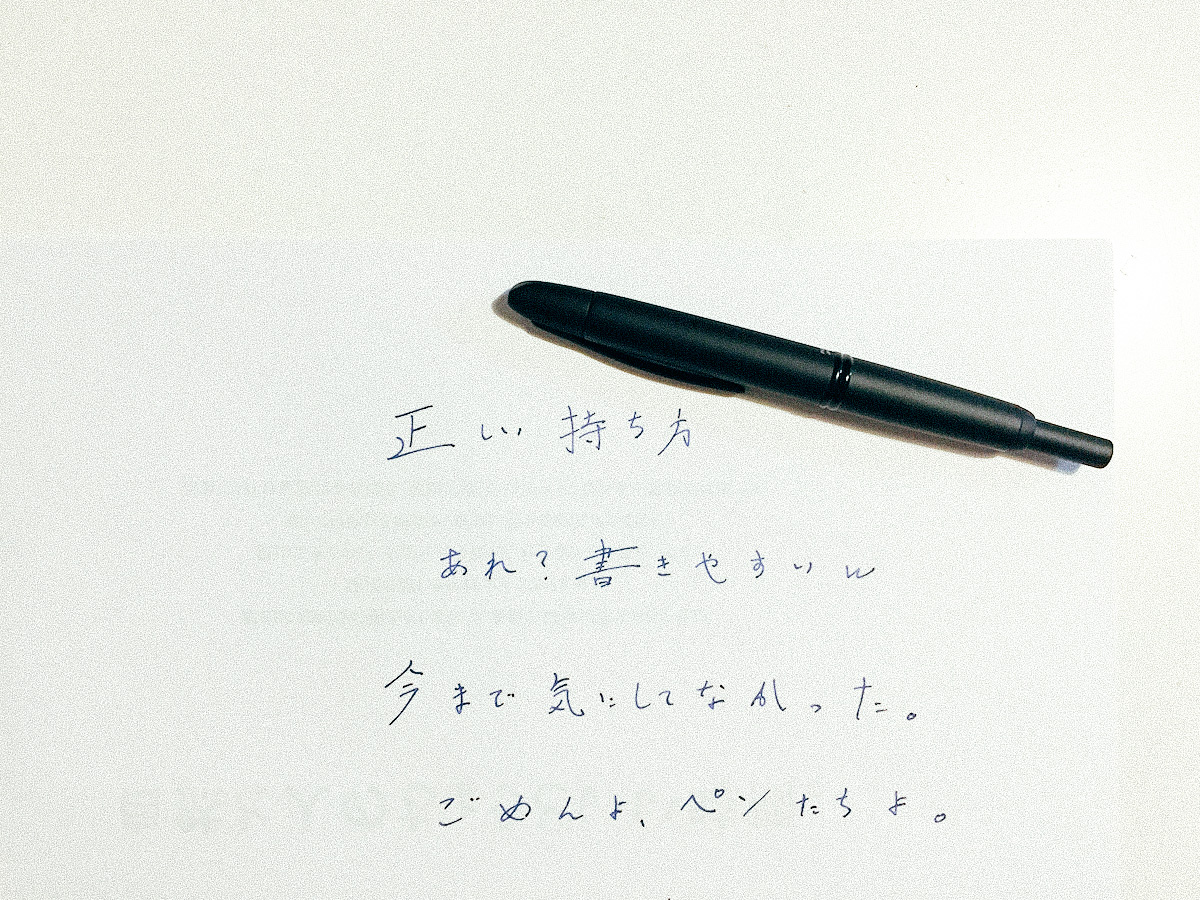 正しい持ち方
あれ?書きやすいw
今まで気にしてなかった。
ごめんよ、ペンたちよ。